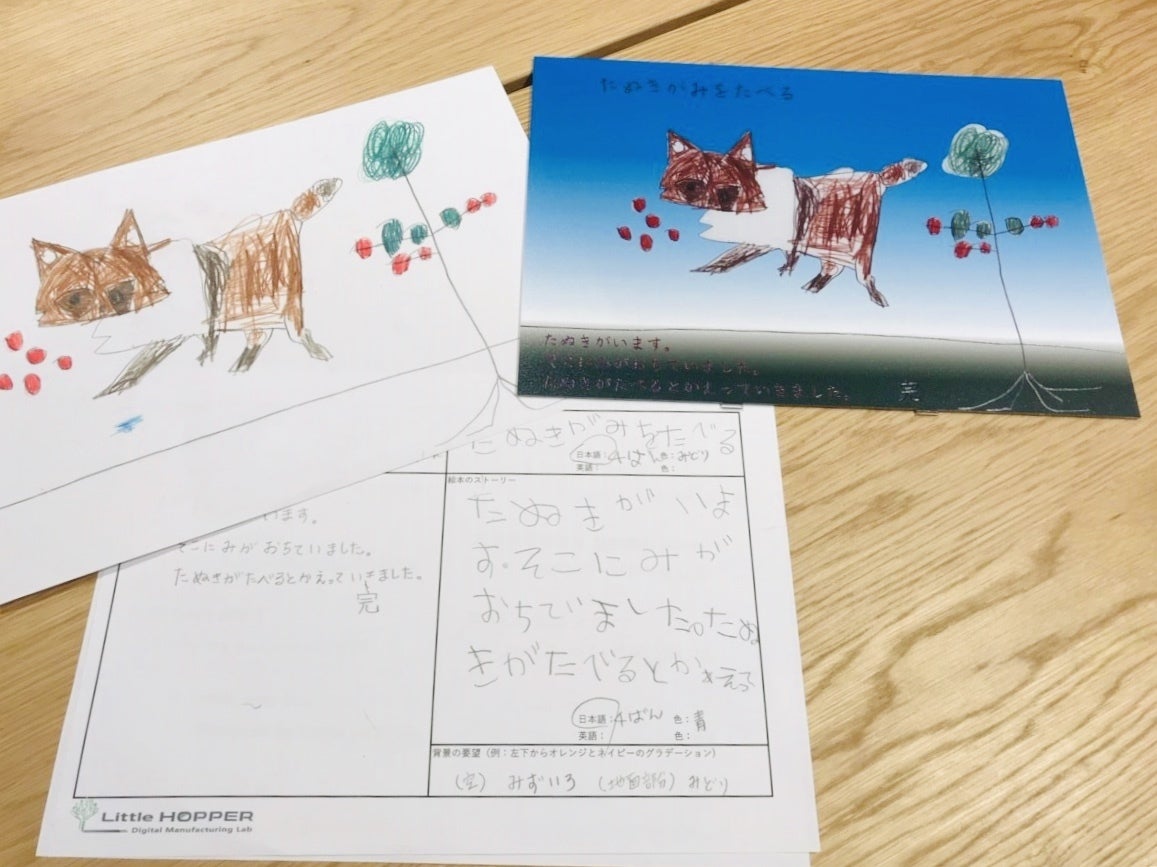 たぬきがみをたべる
たぬきがいます。
そこにみがおちていました。
たぬきがたべるとかえっていきました。
完
たぬきがみをたべる
日本語：4ばん 色：みどり
英語： 色：
絵本のストーリー
たぬきがいま
す。そこにみが
おちていました。たぬ
きがたべるとかえって
日本語：4ばん 色：青
英語： 色：
います。
そこにみがおちていました。
たぬきがたべるとかえっていきました。
完
背景の要望（例：左下からオレンジとネイビーのグラデーション）
（空） みずいろ （地面部分） みどり
Little HOPPER
Digital Manufacturing Lab